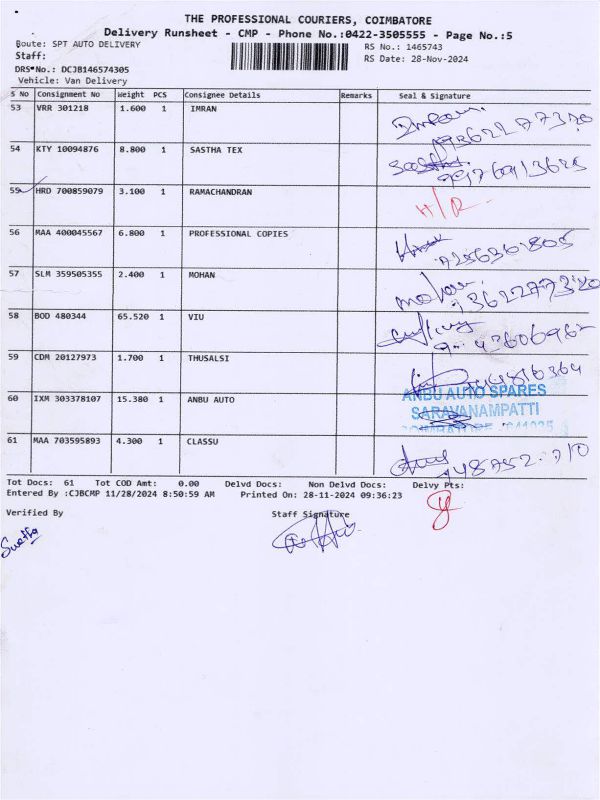 THE PROFESSIONAL COURIERS, COIMBATORE
Delivery Runsheet - CMP - Phone No.:0422-3505555 - Page No.:5
Route: SPT AUTO DELIVERY
RS No.: 1465743
Staff:
RS Date: 28-Nov-2024
DRS No.: DCJB146574305
Vehicle: Van Delivery
S No Consignment No Weight PCS Consignee Details Remarks Seal & Signature
53 VRR 301218 1.600 1 IMRAN
Imran
54 KTY 10094876 8.800 1 SASTHA TEX
55 HRD 700859079 3.100 1 RAMACHANDRAN
H/R
56 MAA 400045567 6.800 1 PROFESSIONAL COPIES
57 SLM 359505355 2.400 1 MOHAN
mohan
58 BOD 480344 65.520 1 VIU
59 CDM 20127973 1.700 1 THUSALSI
60 IXM 303378107 15.380 1 ANBU AUTO
ANBU AUTO SPARES
SARAVANAMPATTI
61 MAA 703595893 4.300 1 CLASSU
Tot Docs: 61 Tot COD Amt: 0.00 Delvd Docs: Non Delvd Docs: Delvy Pts:
Entered By :CJBCMP 11/28/2024 8:50:59 AM Printed On: 28-11-2024 09:36:23
Verified By Staff Signature
Swetha